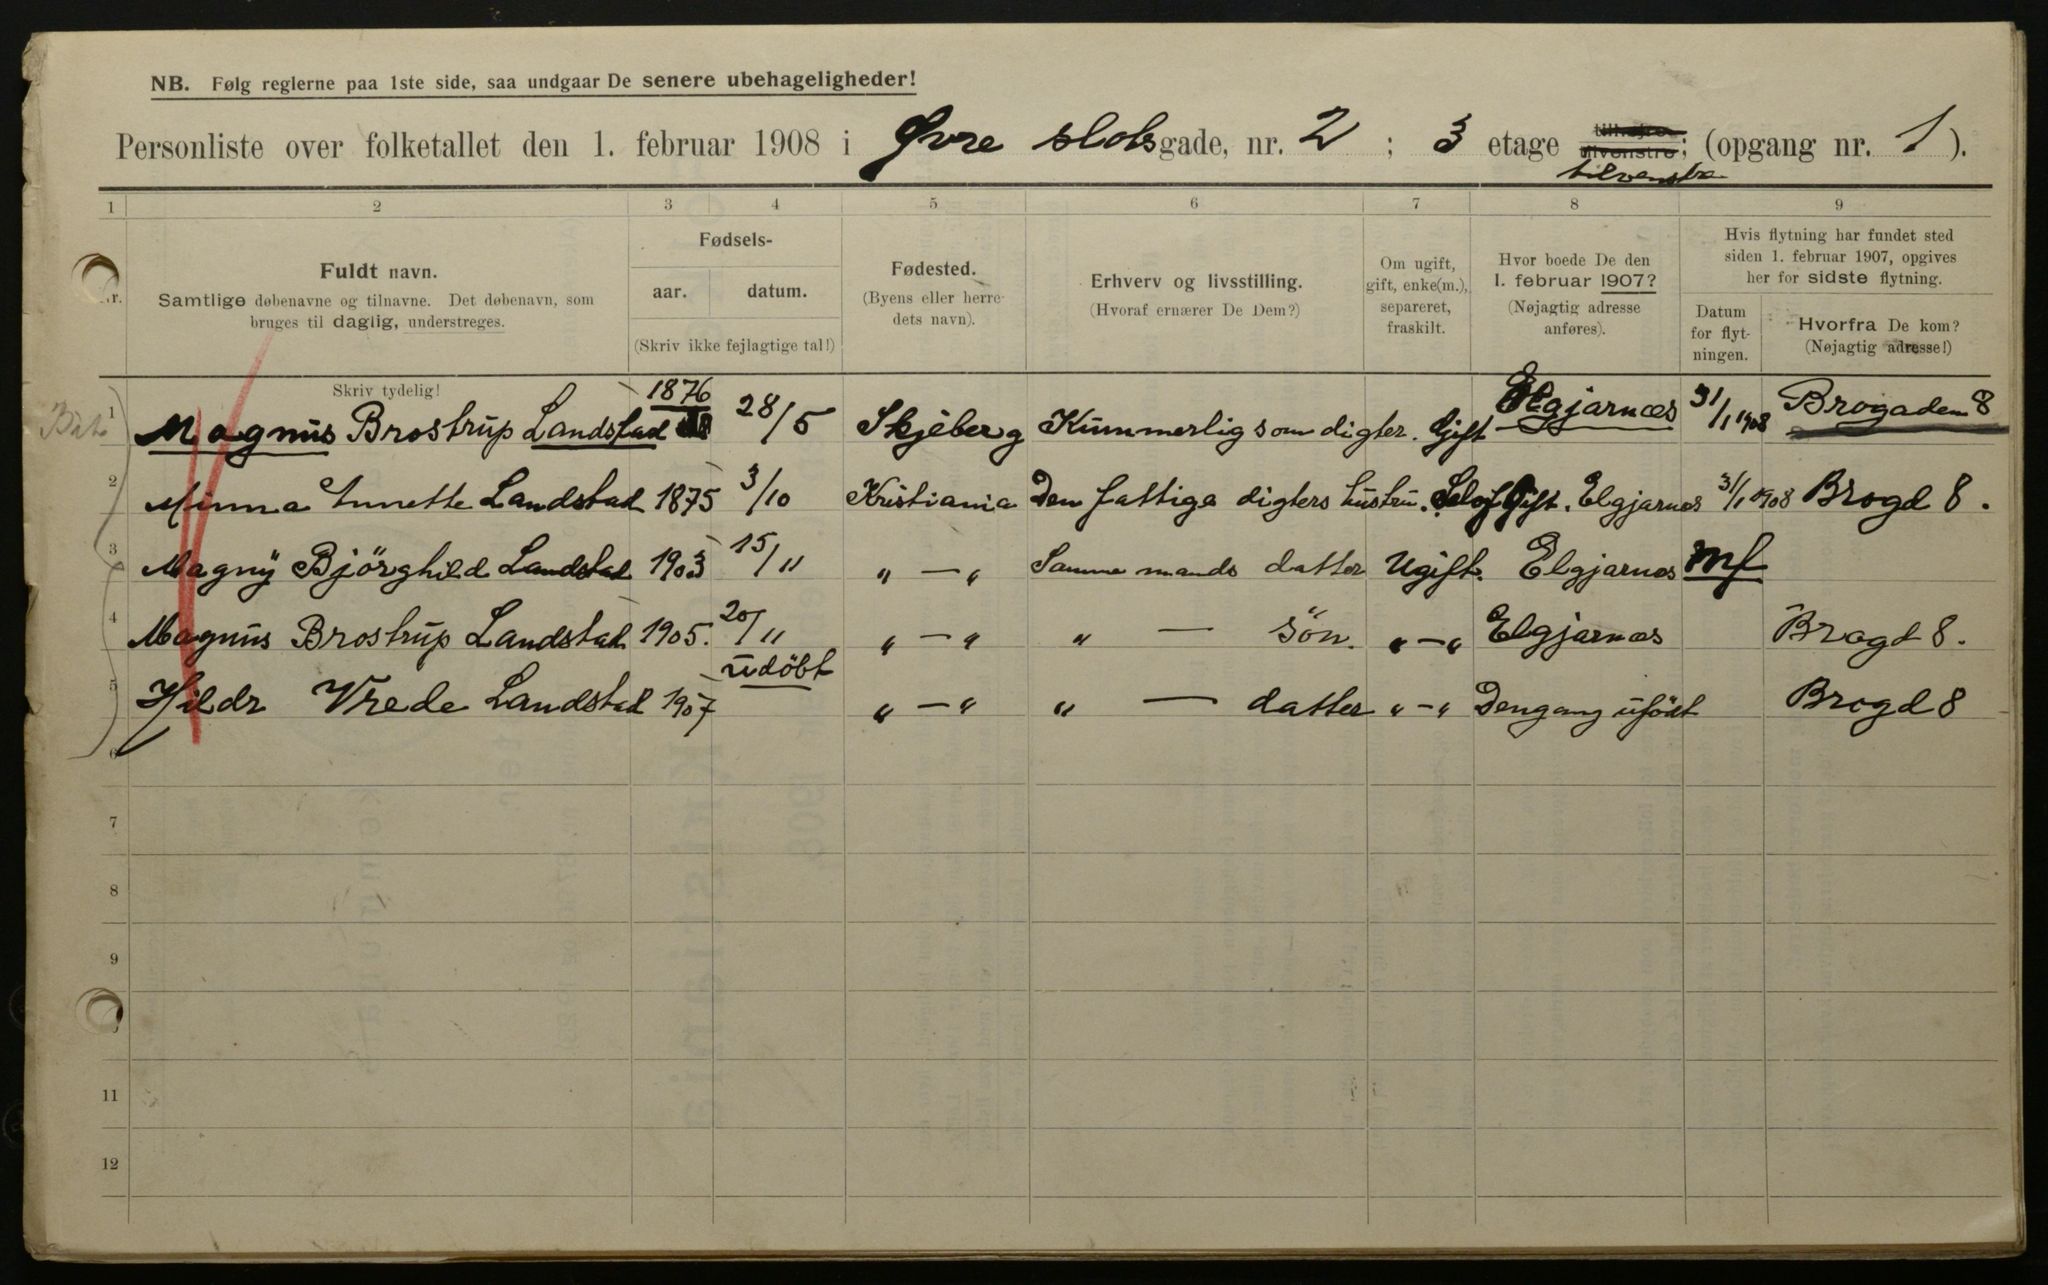 NB. Følg reglerne paa 1ste side, saa undgaar De senere ubehageligheder!
Personliste over folketallet den 1. februar 1908 i Øvre slotsgade, nr. 2 ; 3 etage tilhøire tilvenstre; (opgang nr. 1 ).
tilvenstre
1 2 3 4 5 6 7 8 9
Nr.
Fuldt navn.
Samtlige døbenavne og tilnavne. Det døbenavn, som
bruges til daglig, understreges.
Fødsels-
aar. datum.
(Skriv ikke fejlagtige tal!)
Fødested.
(Byens eller herre-
dets navn).
Erhverv og livsstilling.
(Hvoraf ernærer De Dem?)
Om ugift,
gift, enke(m.),
separeret,
fraskilt.
Hvor boede De den
1. februar 1907?
(Nøjagtig adresse
anføres).
Hvis flytning har fundet sted
siden 1. februar 1907, opgives
her for sidste flytning.
Datum
for flyt-
ningen.
Hvorfra De kom?
(Nøjagtig adresse!)
Skriv tydelig!
1 Magnus Brostrup Landstad 1876 28/5 Skjeberg Kummerlig som digter. Gift Elgjarnæs 31/1 1908 Brogaden 8
2 Minna Annette Landstad 1875 3/10 Kristiania Den fattige digters hustru. Gift. Elgjarnæs 31/1 1908 Brogd 8.
3 Magny Bjørghild Landstad 1903 15/11 " — " Samme mands datter Ugift. Elgjarnæs mf
4 Magnus Brostrup Landstad 1905. 20/11 " — " " — sön. " — " Elgjarnæs Brogd 8.
5 Hildr Vrede Landstad 1907 udöbt " — " " — datter " — " Dengang ufödt Brogd 8
6
7
8
9
11
12